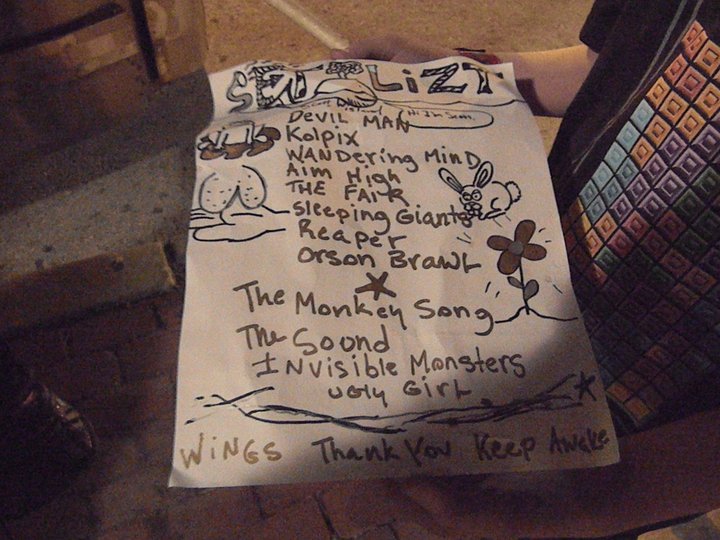 SET LiZT
Hi I'm Scott
DEVIL MAN
Kolpix
WANDering MinD
Aim High
THE FAIR
Sleeping Giants
Reaper
Orson Brawl
The Monkey Song
The Sound
INvisible Monsters
UGly Girl
WiNGS Thank You Keep Awake